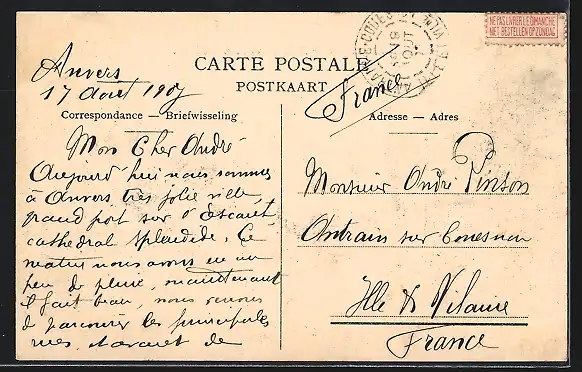 CARTE POSTALE
POSTKAART
NE PAS LIVRER LE DIMANCHE
NIET BESTELLEN OP ZONDAG
France
Anvers
17 Aout 1907
Correspondance — Briefwisseling
Mon Cher André
Aujourd'hui nous sommes
à Anvers très jolie ville,
grand port sur l'Escaut,
cathédral splendide. Ce
matin nous avons eu un
peu de pluie, maintenant
il fait beau, nous venons
de parcourir les principales
rues et avant de
Adresse — Adres
Monsieur André Pinson
Antrain sur Couesnon
Ille & Vilaine
France